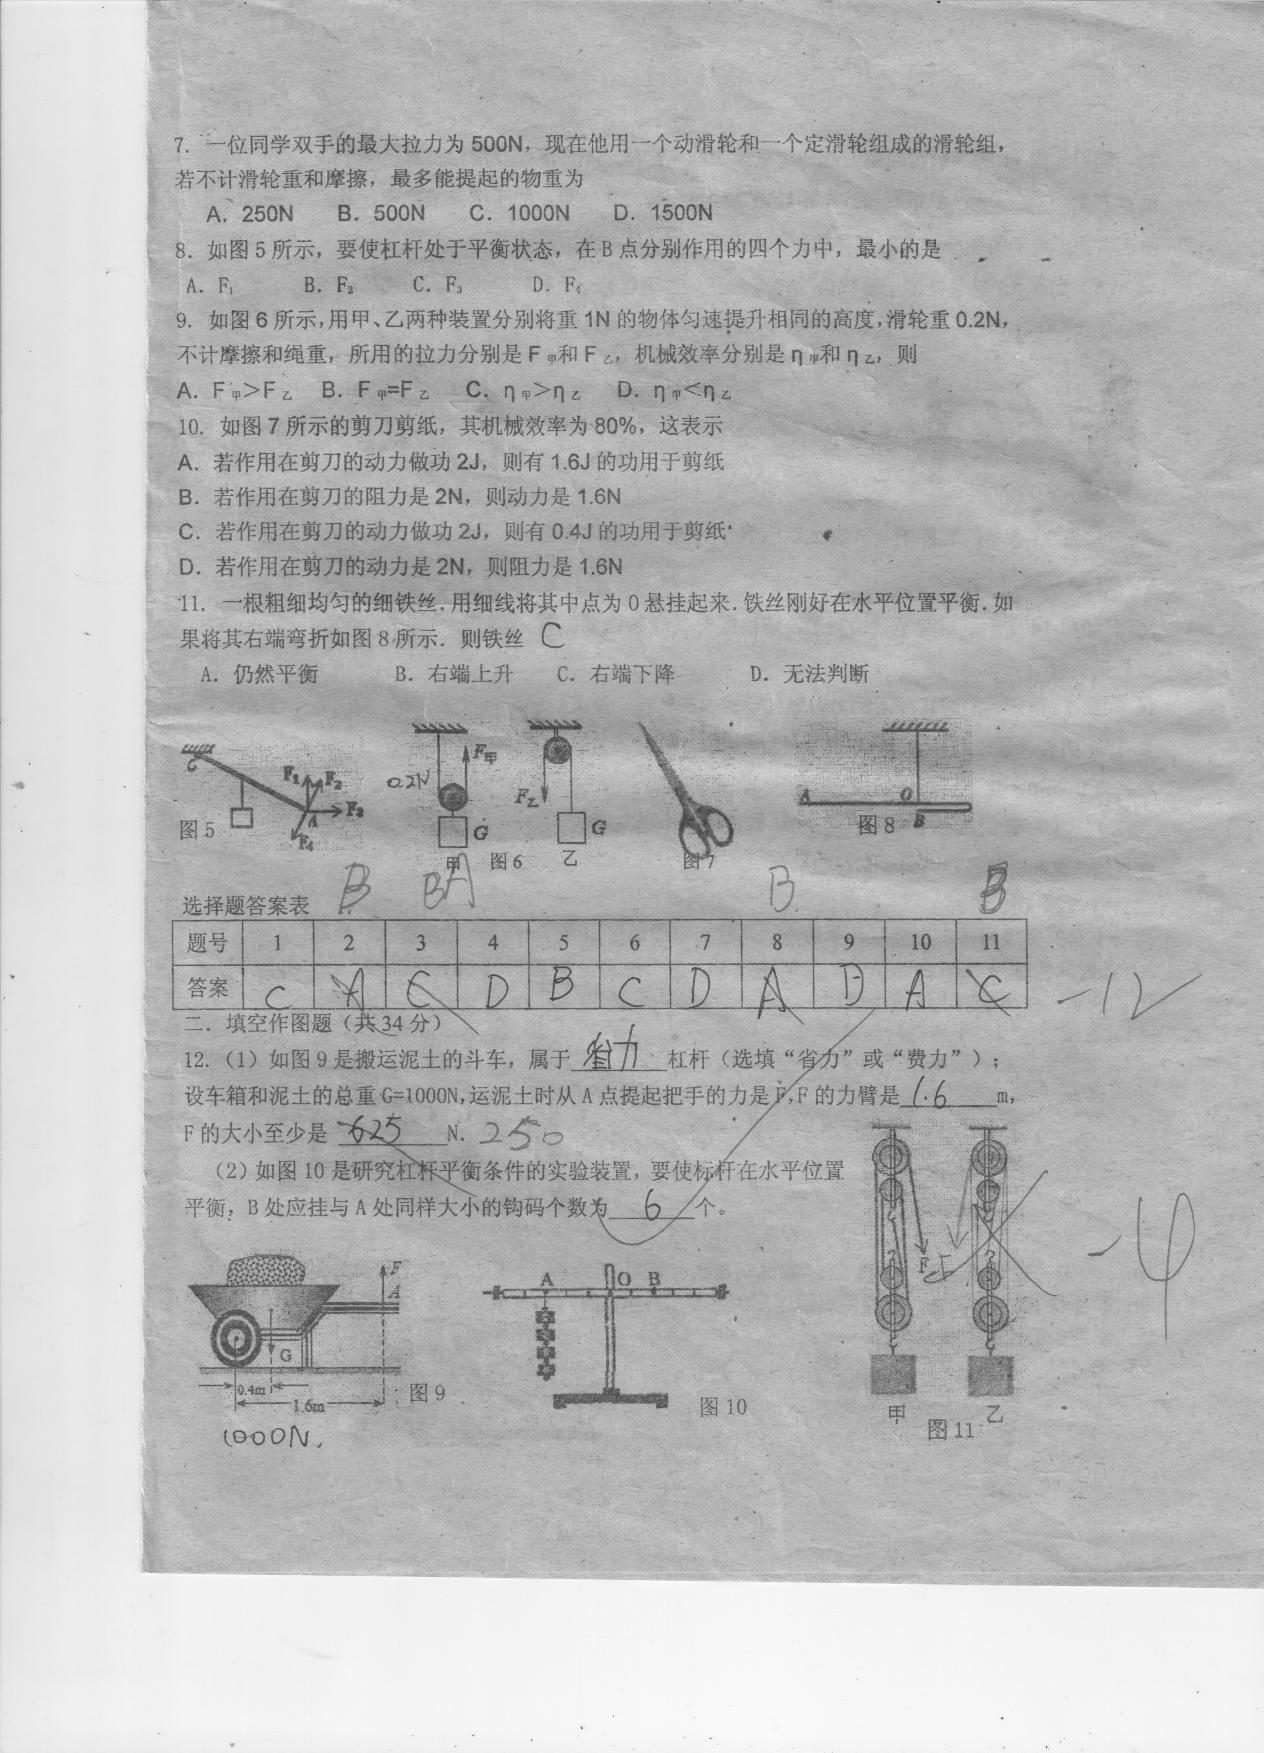 7. 一位同学双手的最大拉力为 500N，现在他用一个动滑轮和一个定滑轮组成的滑轮组，
若不计滑轮重和摩擦，最多能提起的物重为
A．250N B．500N C．1000N D．1500N
8．如图 5 所示，要使杠杆处于平衡状态，在 B 点分别作用的四个力中，最小的是
A．F₁ B．F₂ C．F₃ D．F₄
9． 如图 6 所示，用甲、乙两种装置分别将重 1N 的物体匀速提升相同的高度，滑轮重 0.2N，
不计摩擦和绳重，所用的拉力分别是 F 甲和 F 乙，机械效率分别是 η 甲和 η 乙，则
A．F 甲＞F 乙 B．F 甲=F 乙 C．η 甲＞η 乙 D．η 甲＜η 乙
10． 如图 7 所示的剪刀剪纸，其机械效率为 80%，这表示
A．若作用在剪刀的动力做功 2J，则有 1.6J 的功用于剪纸
B．若作用在剪刀的阻力是 2N，则动力是 1.6N
C．若作用在剪刀的动力做功 2J，则有 0.4J 的功用于剪纸
D．若作用在剪刀的动力是 2N，则阻力是 1.6N
11． 一根粗细均匀的细铁丝．用细线将其中点为 O 悬挂起来．铁丝刚好在水平位置平衡．如
果将其右端弯折如图 8 所示．则铁丝 C
A．仍然平衡 B．右端上升 C．右端下降 D．无法判断
C F₁ F₂ F₃ F₄ A 图 5
0.2N F甲 G 甲 图 6 F乙 G 乙
图 7
A O B 图 8
B BA B B
选择题答案表
题号 1 2 3 4 5 6 7 8 9 10 11
答案 C A C D B C D A D A C
-12
二．填空作图题（共 34 分）
12．（1）如图 9 是搬运泥土的斗车，属于 省力 杠杆（选填“省力”或“费力”）；
设车箱和泥土的总重 G=1000N，运泥土时从 A 点提起把手的力是 F，F 的力臂是 1.6 m，
F 的大小至少是 625 N． 250
（2）如图 10 是研究杠杆平衡条件的实验装置，要使标杆在水平位置
平衡，B 处应挂与 A 处同样大小的钩码个数为 6 个。
F A G 0.4m 1.6m 图 9
1000N
A O B 图 10
F 甲 乙 图 11
-4